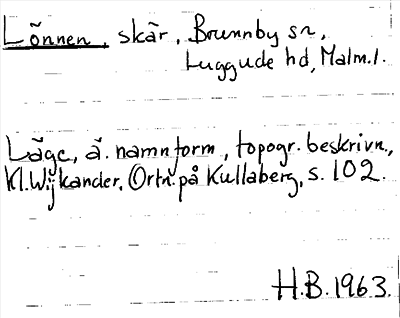 Lönnen, skär, Brunnby sn,
Luggude hd, Malm.l.
Läge, ä. namnform, topogr. beskrivn.,
Kl. Wijkander, Ortn. på Kullaberg, s. 102.
H.B. 1963.